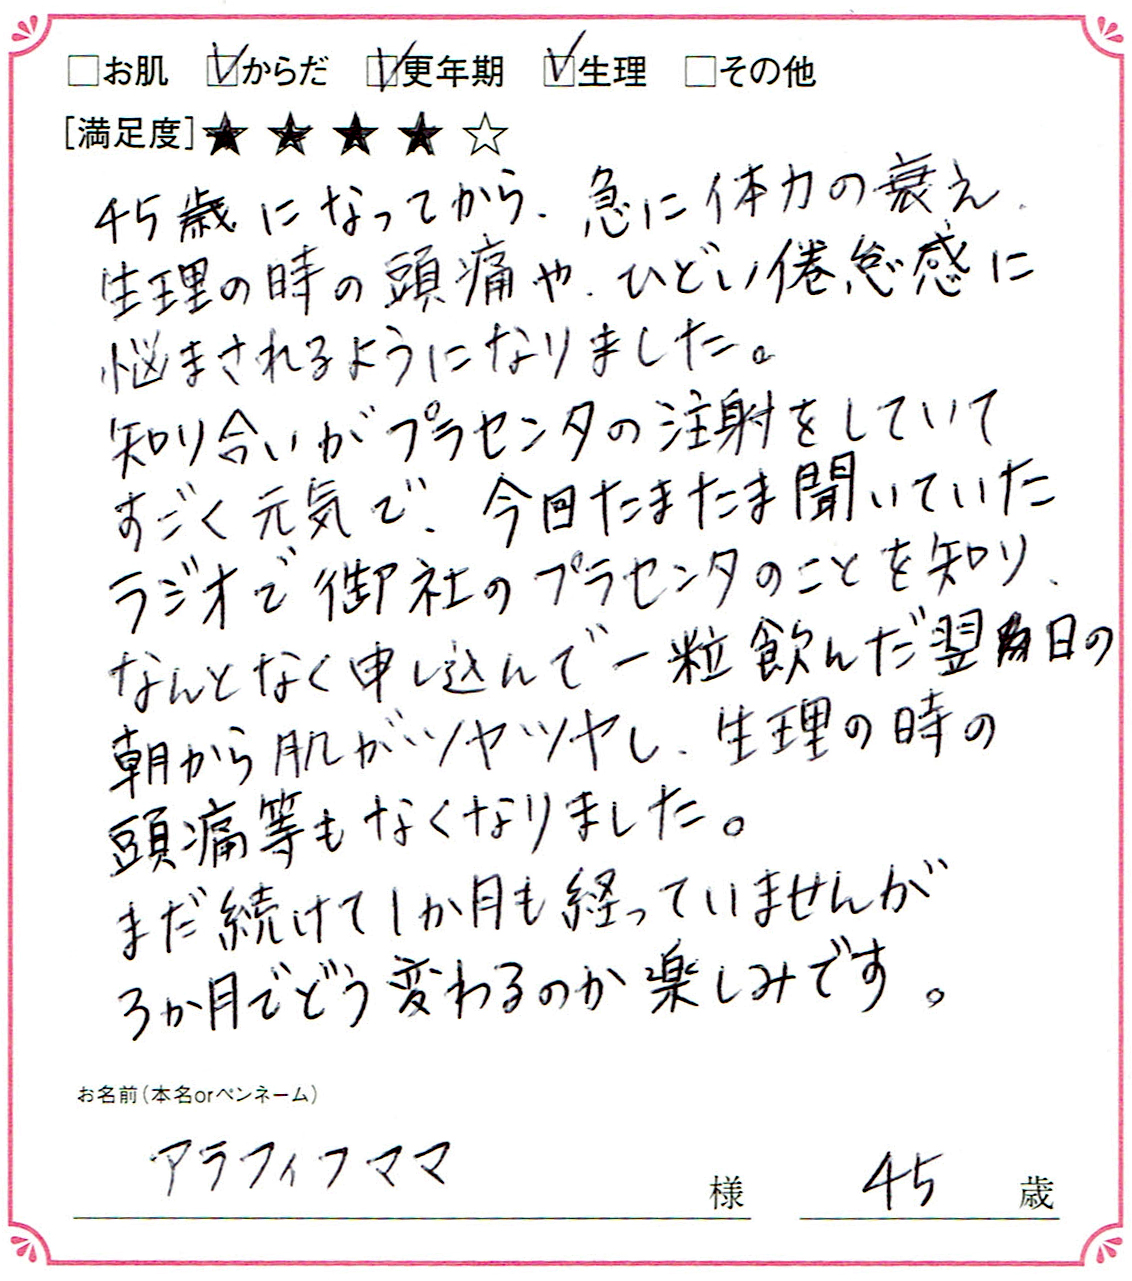 □お肌 ☑からだ ☑更年期 ☑生理 □その他
[満足度]★★★★☆
45歳になってから、急に体力の衰え、
生理の時の頭痛や、ひどい倦怠感に
悩まされるようになりました。
知り合いがプラセンタの注射をしていて
すごく元気で、今回たまたま聞いていた
ラジオで御社のプラセンタのことを知り、
なんとなく申し込んで一粒飲んだ翌日の
朝から肌がツヤツヤし、生理の時の
頭痛等もなくなりました。
まだ続けて1か月も経っていませんが
3か月でどう変わるのか楽しみです。
お名前(本名orペンネーム)
アラフィフママ 様 45 歳